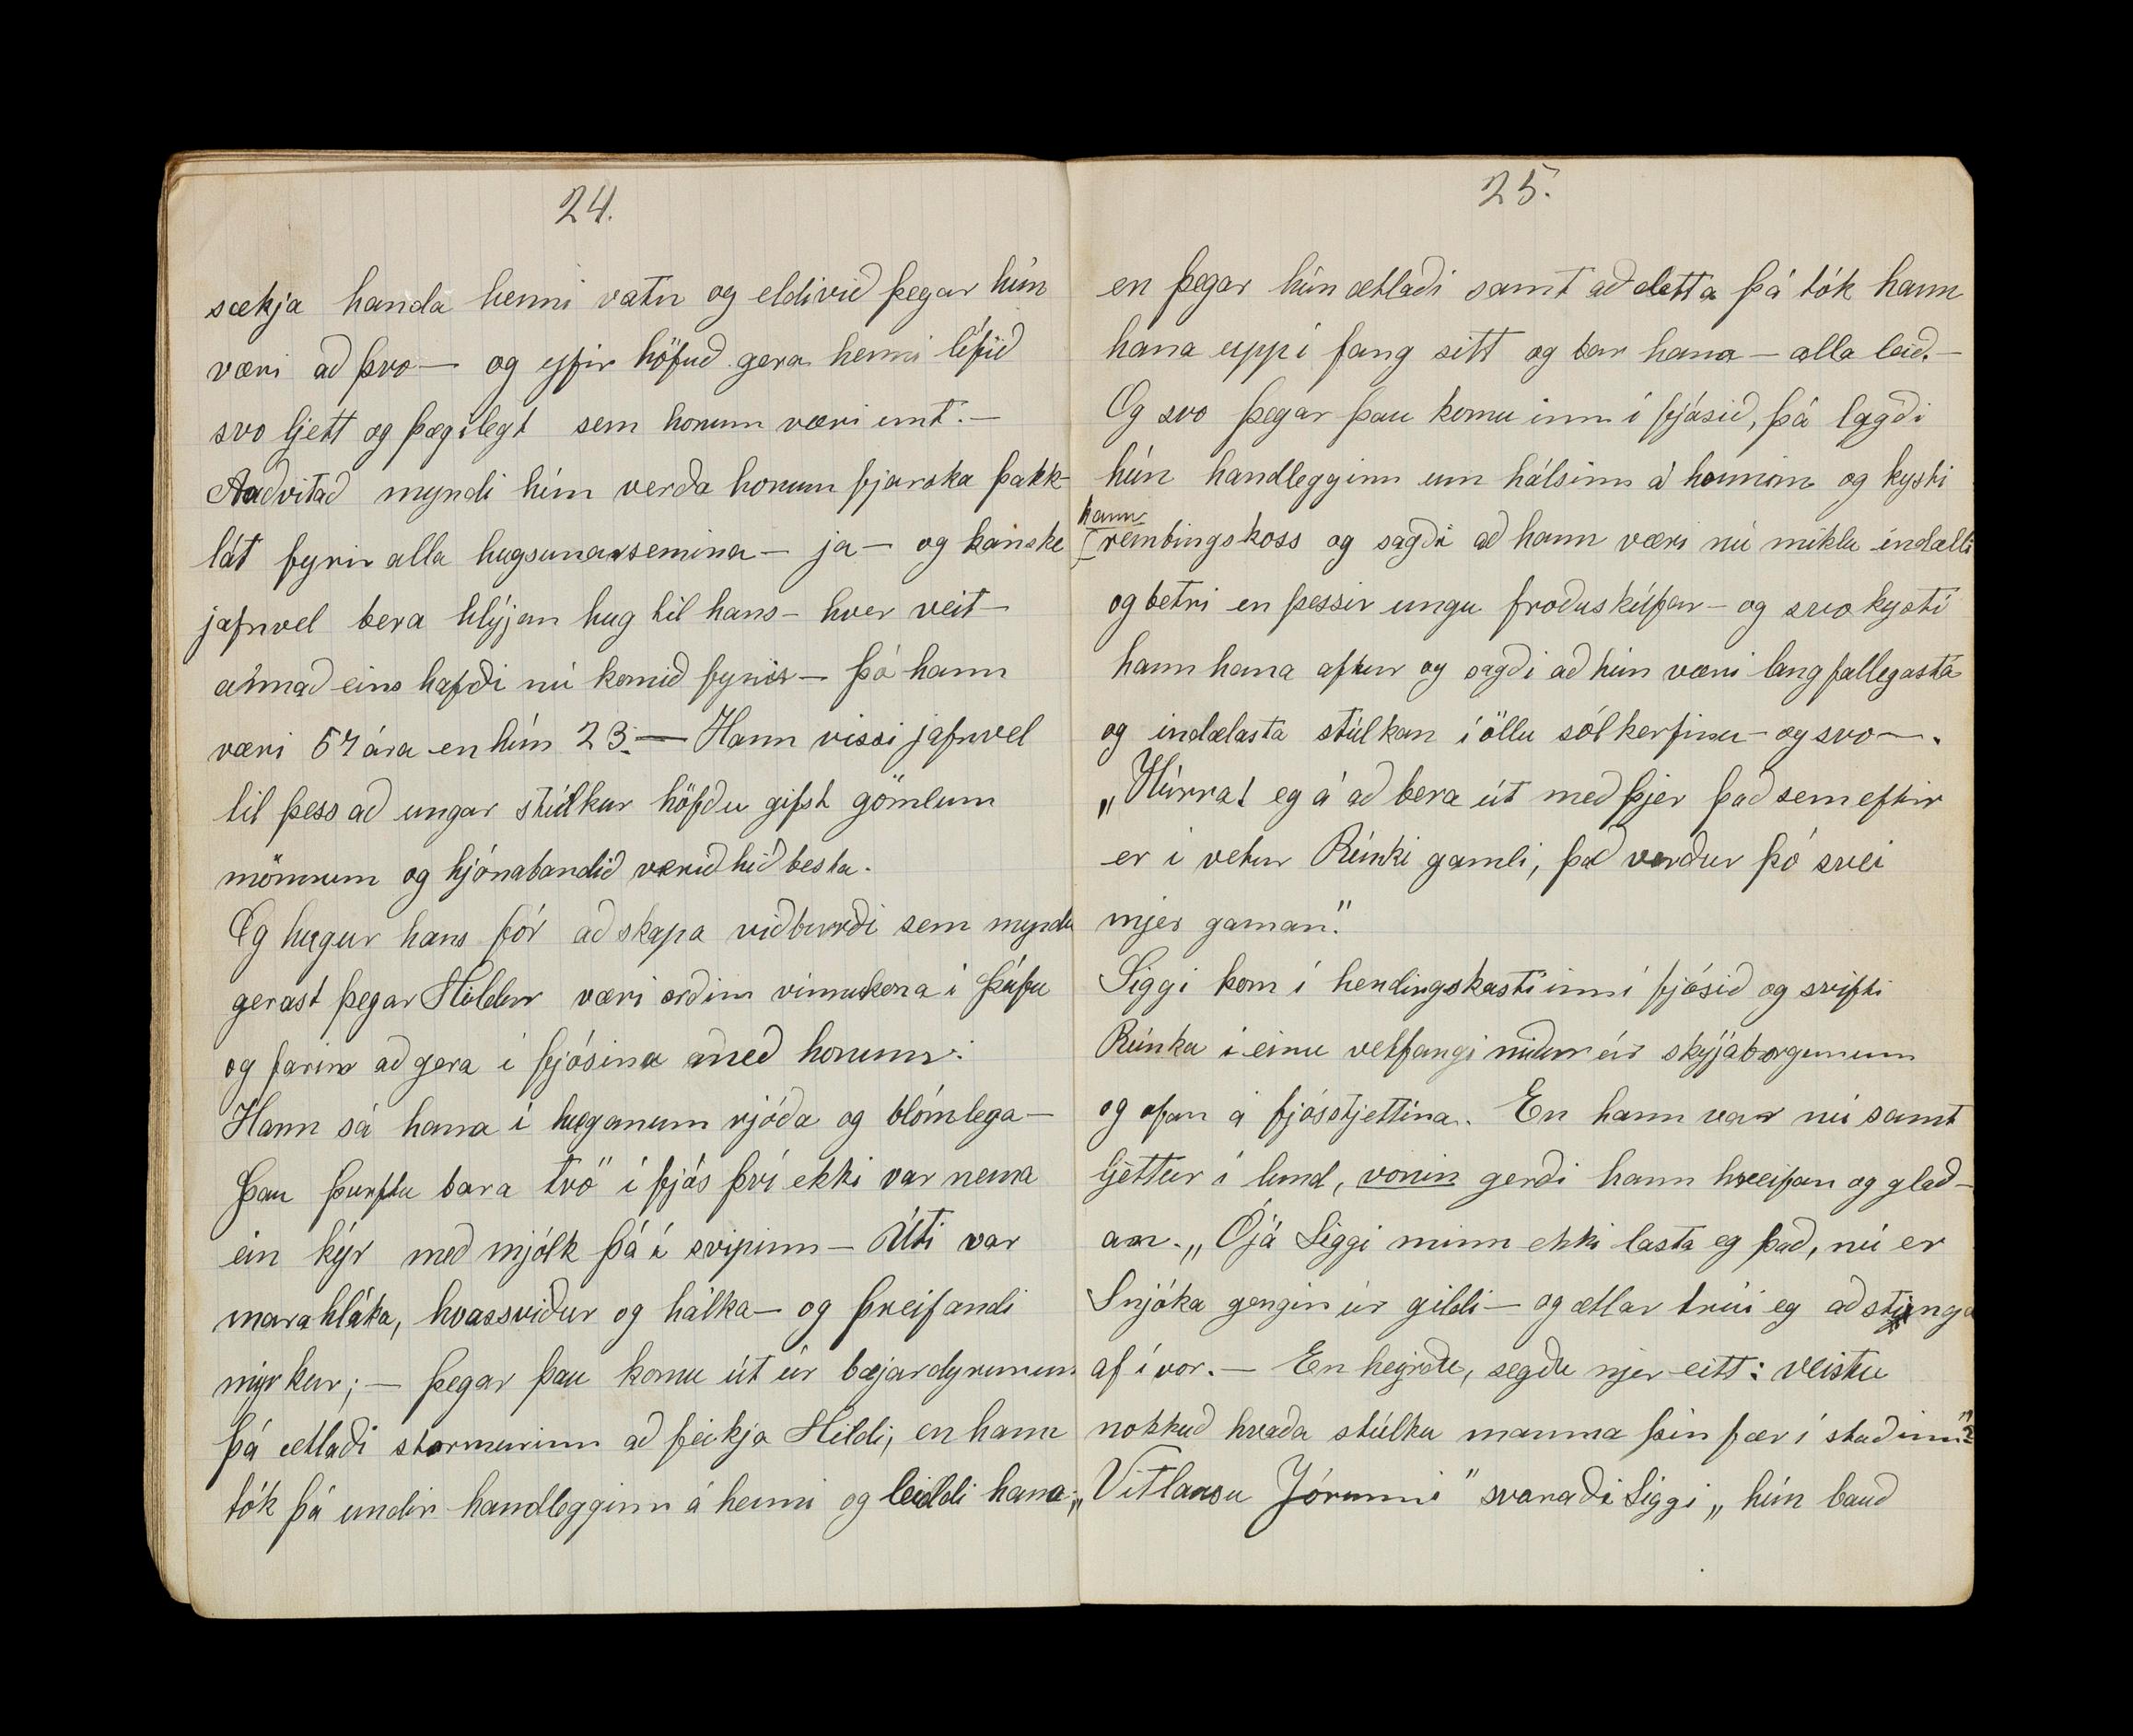 24.
sækja handa henni vatn og eldivið þegar hún
væri að þvo — og yfir höfuð gera henni lífið
svo ljett og þægilegt sem honum væri unt. —
Auðvitað myndi hún verða honum fjarska þakk-
lát fyrir alla hugsunarsemina — ja — og kanske
jafnvel bera hlýjan hug til hans — hver veit —
annað eins hafði nú komið fyrir — þó hann
væri 57 ára en hún 23. — Hann vissi jafnvel
til þess að ungar stúlkur höfðu gifst gömlum
mönnum og hjónabandið verið hið besta.
Og hugur hans fór að skapa viðburði sem myndu
gerast þegar Hildur væri orðin vinnukona í Þúfu
og farin að gera í fjósinu með honum:
Hann sá hana í huganum rjóða og blómlega —
Þau þurftu bara tvö í fjós því ekki var nema
ein kýr með mjólk þá í svipinn — Úti var
marahláka, hvassviður og hálka — og þreifandi
myrkur; — þegar þau komu út úr bæjardyrunum
þá ætlaði stormurinn að feikja Hildi, en hann
tók þá undir handlegginn á henni og leiddi hana,
25.
en þegar hún ætlaði samt að detta þá tók hann
hana upp í fang sitt og bar hana — alla leið. —
Og svo þegar þau komu inn í fjósið, þá lagði
hún handlegginn um hálsinn á honum og kysti
hann
rembingskoss og sagði að hann væri nú miklu indælli
og betri en þessir ungu froðuskúfar — og svo kysti
hann hana aftur og sagði að hún væri langfallegasta
og indælasta stúlkan í öllu sólkerfinu — og svo —.
„Húrra! eg á að bera út með þjer það sem eftir
er í vetur Rúnki gamli, það verður þó svei
mjer gaman."
Siggi kom í hendingskasti inn í fjósið og svifti
Rúnka í einu vetfangi niður úr skýjaborgunum
og ofan á fjósstjettina. En hann var nú samt
ljettur í lund, vonin gerði hann hreifan og glað-
an. „Ójá Siggi minn ekki lasta eg það, nú er
Snjóka gengin úr gildi — og ætlar trúi eg að stinga
af í vor. — En heyrðu, segðu mjer eitt: veistu
nokkuð hvaða stúlku mamma þín fær í staðinn"?
„Vitlausu Jórunni" svaraði Siggi „hún bauð